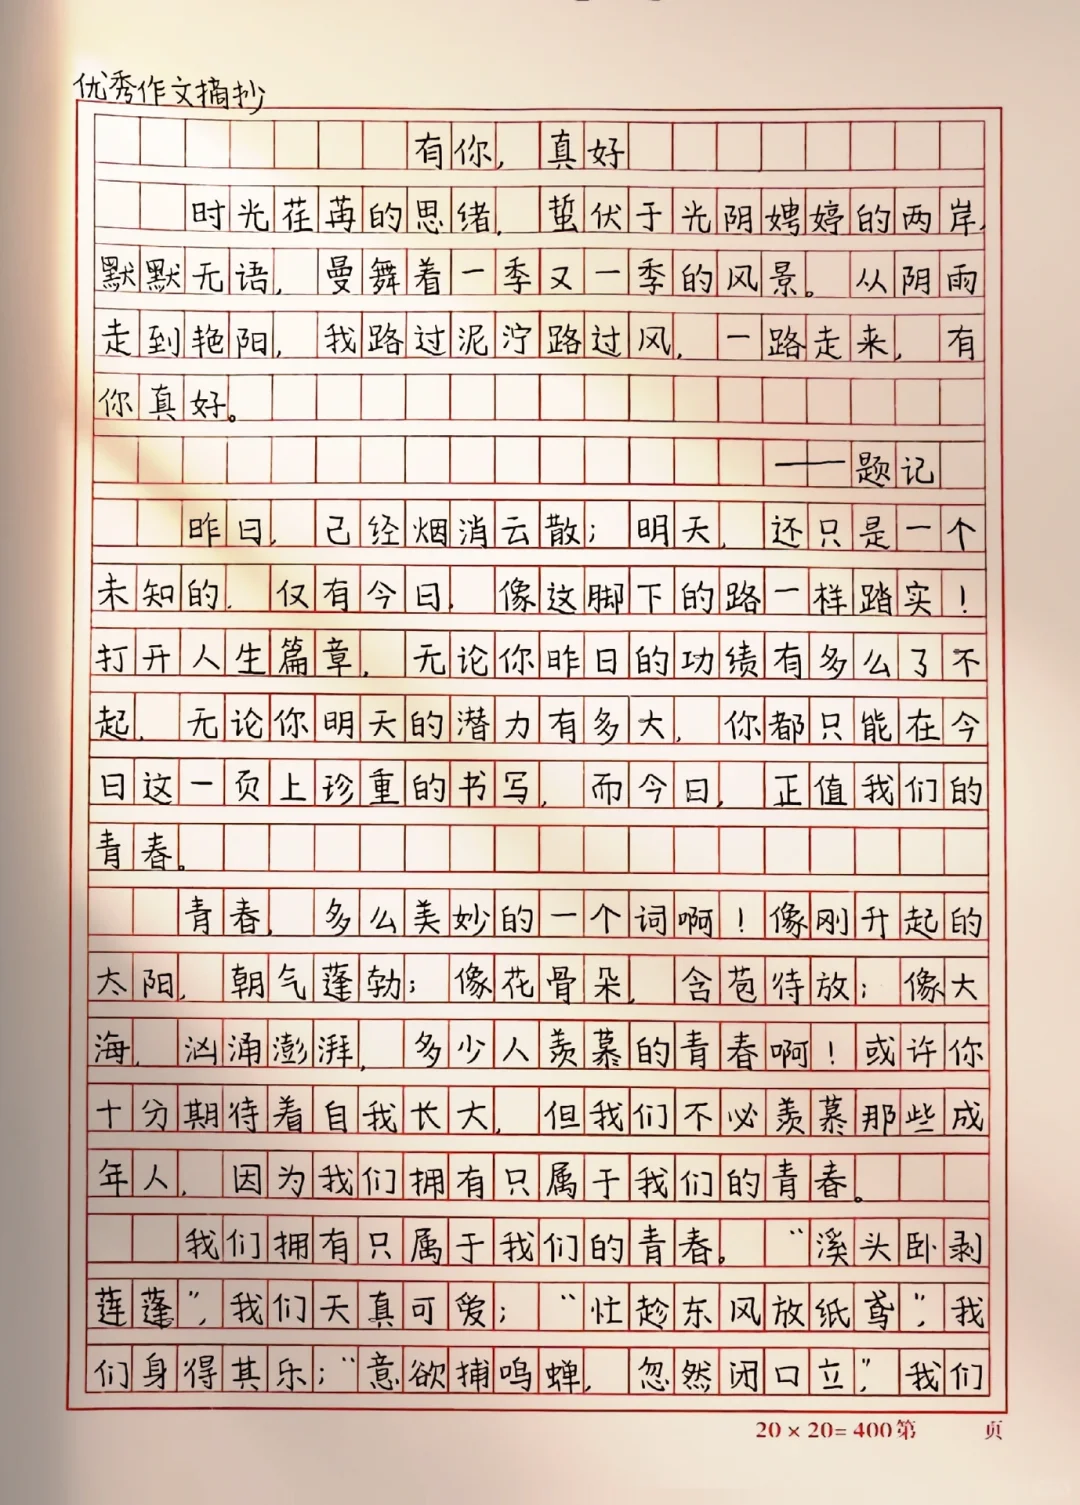 优秀作文摘抄
有你，真好
时光荏苒的思绪，蜇伏于光阴娉婷的两岸，
默默无语，曼舞着一季又一季的风景。从阴雨
走到艳阳，我路过泥泞路过风，一路走来，有
你真好。
——题记
昨日，己经烟消云散；明天，还只是一个
未知的，仅有今日，像这脚下的路一样踏实！
打开人生篇章，无论你昨日的功绩有多么了不
起，无论你明天的潜力有多大，你都只能在今
日这一页上珍重的书写，而今日，正值我们的
青春。
青春，多么美妙的一个词啊！像刚升起的
太阳，朝气蓬勃；像花骨朵，含苞待放；像大
海，汹涌澎湃，多少人羡慕的青春啊！或许你
十分期待着自我长大，但我们不必羡慕那些成
年人，因为我们拥有只属于我们的青春。
我们拥有只属于我们的青春。“溪头卧剥
莲蓬”，我们天真可爱；“忙趁东风放纸鸢”，我
们身得其乐；“意欲捕鸣蝉，忽然闭口立，”我们
20×20=400第 页